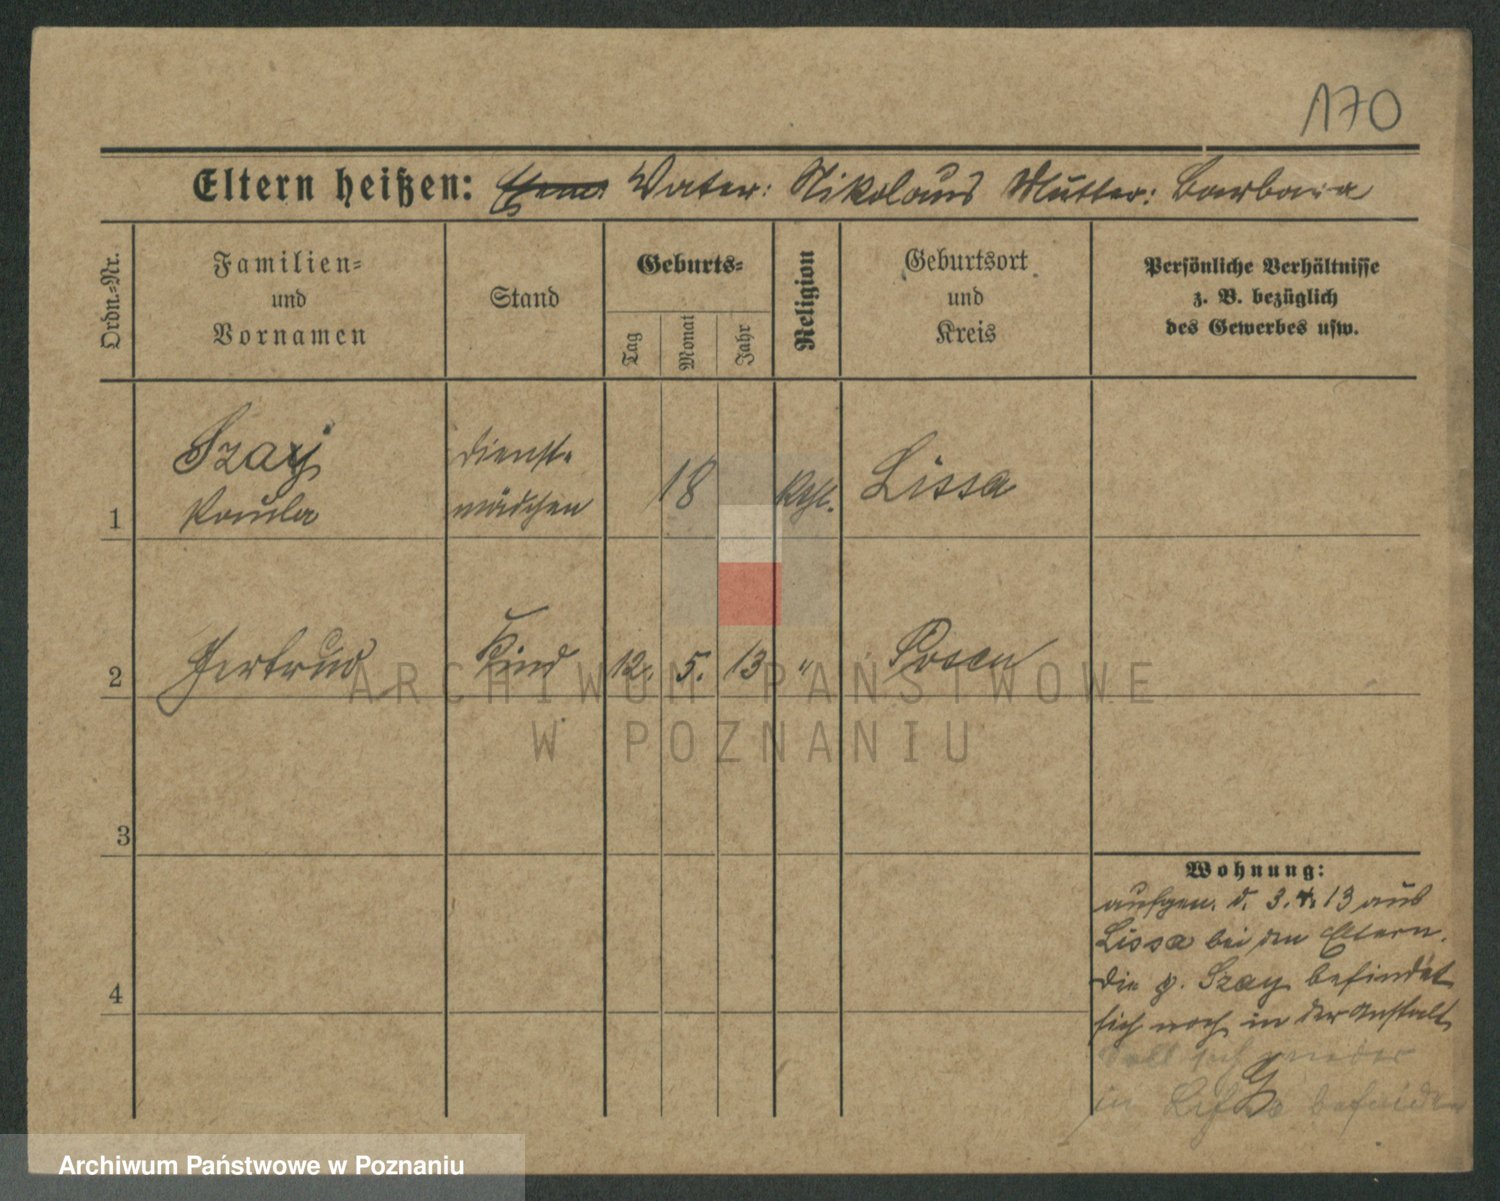 170
Eltern heißen: Vater: Nikolaus Mutter: Barbara
Ordn.-Nr.
Familien-
und
Vornamen
Stand
Geburts-
Tag
Monat
Jahr
Religion
Geburtsort
und
Kreis
Persönliche Verhältnisse
z. B. bezüglich
des Gewerbes usw.
1
Szaj
Paula
Dienst-
mädchen
18
kath.
Lissa
2
Gertrud
Kind
12. 5. 13
"
Posen
3
4
Wohnung:
aufgen. d. 3. 4. 13 aus
Lissa bei den Eltern.
Die p. Szay befindet
sich noch in der Anstalt
soll sich wieder
in befinden
ARCHIWUM PAŃSTWOWE
W POZNANIU
Archiwum Państwowe w Poznaniu